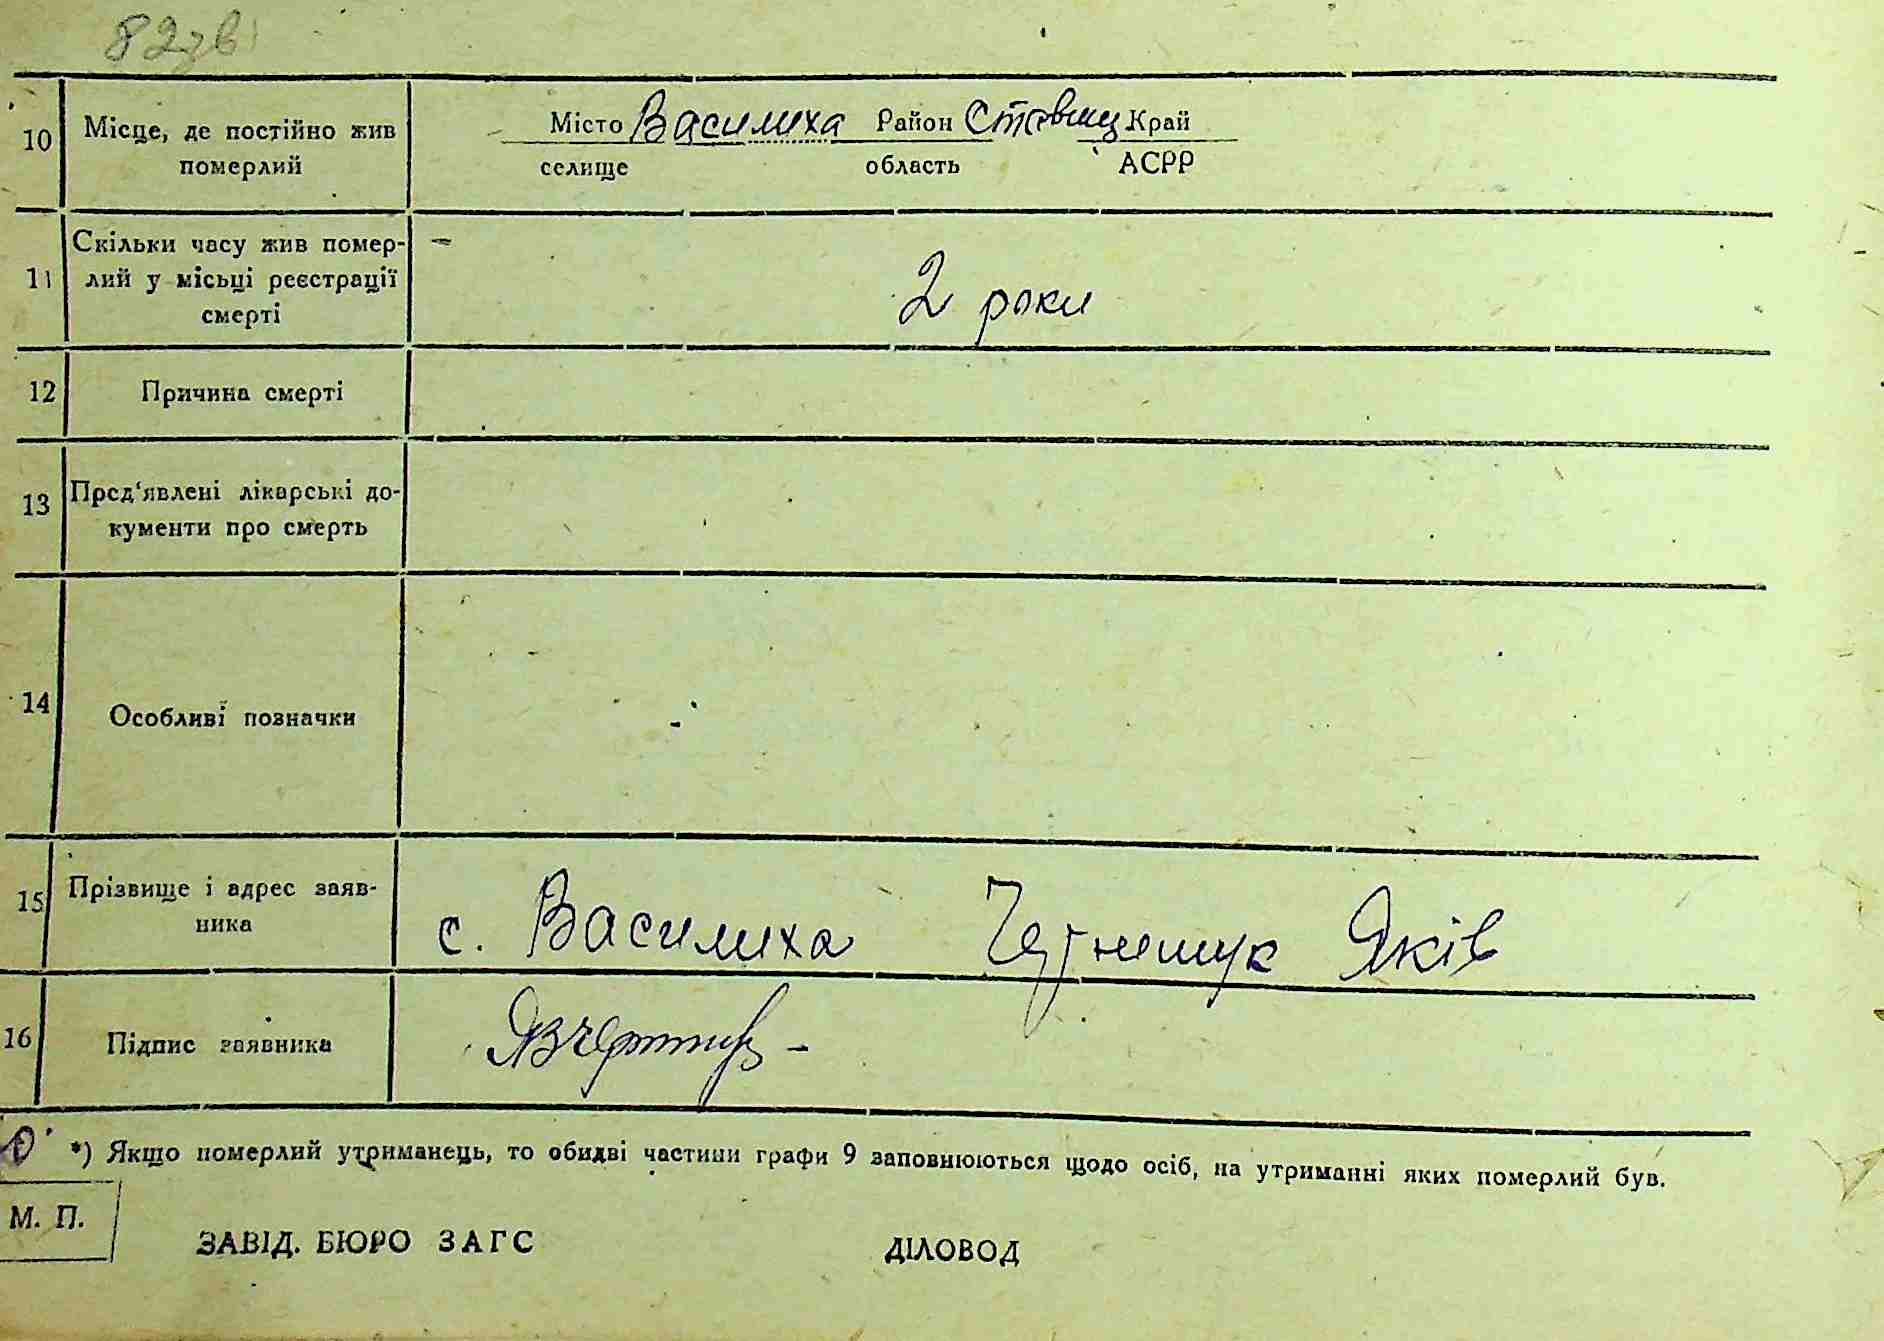 82зв
10 Місце, де постійно жив Місто Василиха Район Ставищ Край
померлий селище область АСРР
11 Скільки часу жив помер-
лий у місьці реєстрації 2 роки
смерті
12 Причина смерті
13 Пред'явлені лікарські до-
кументи про смерть
14 Особливі позначки
15 Прізвище і адрес заяв- с. Василиха Яків
ника
16 Підпис заявника
*) Якщо померлий утриманець, то обидві частини графи 9 заповнюються щодо осіб, на утриманні яких померлий був.
М. П.
ЗАВІД. БЮРО ЗАГС ДІЛОВОД